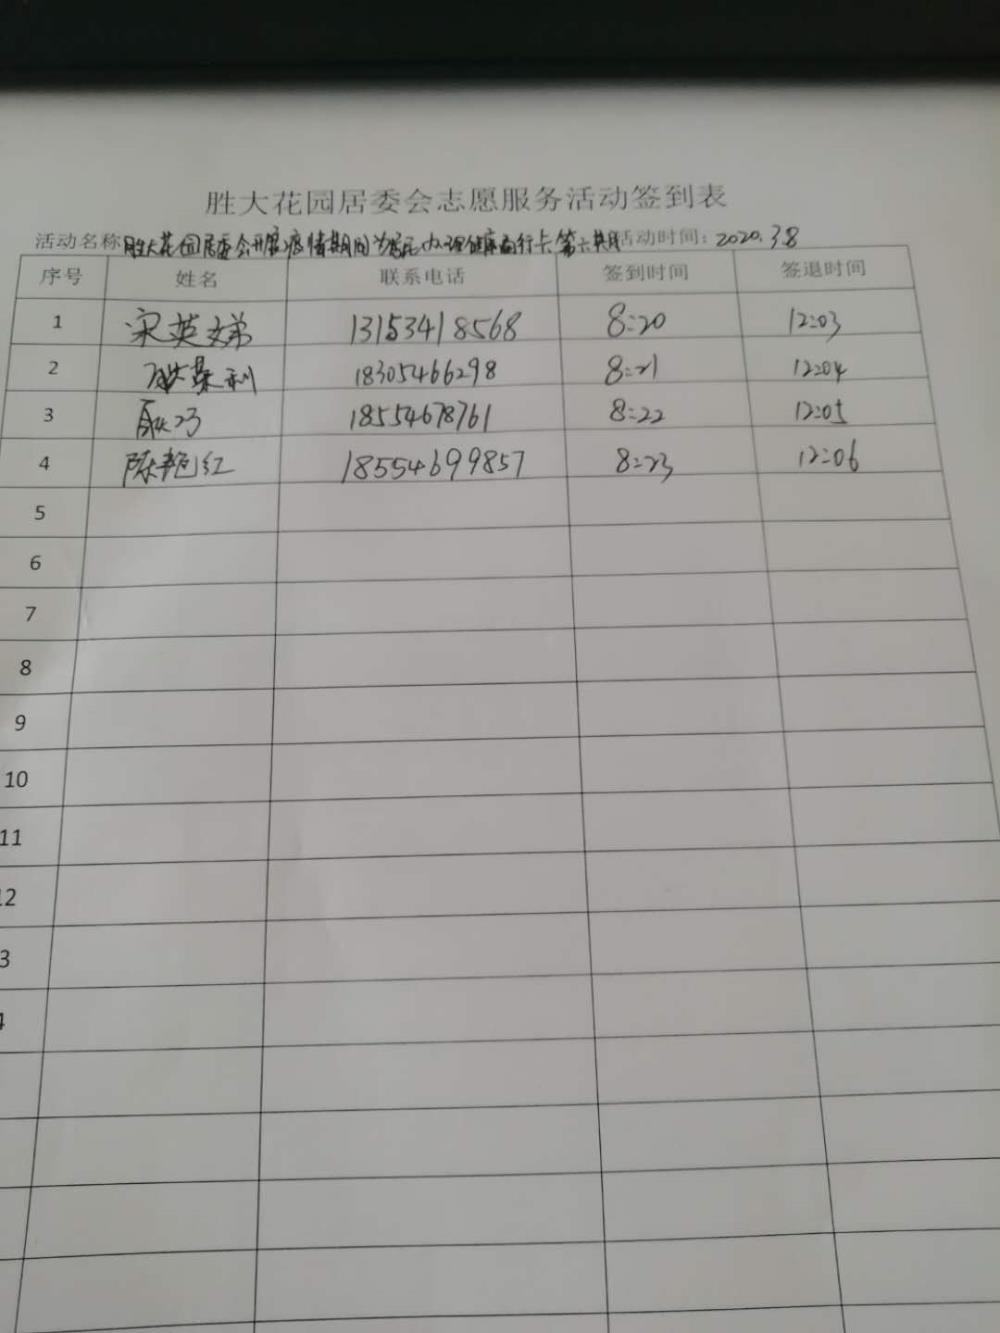 胜大花园居委会志愿服务活动签到表
活动名称 胜大花园居委会开展疫情期间为居民办理健康通行卡第六期 活动时间: 2020.3.8
序号 姓名 联系电话 签到时间 签退时间
1 宋英娣 13153418568 8:20 12:03
2 利 18305466298 8:21 12:04
3 18554678761 8:22 12:05
4 陈艳红 18554699857 8:23 12:06
5
6
7
8
9
10
11
12
3
4